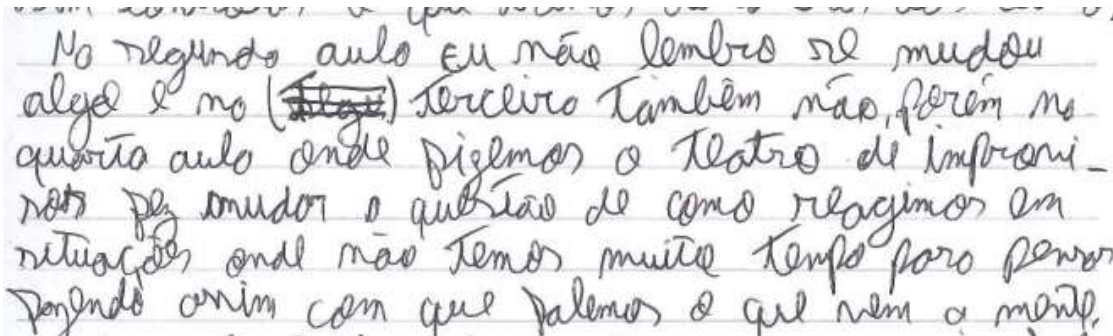 Na segunda aula eu não lembro se mudou
algo e na terceira também não, porém na
quarta aula onde fizemos o teatro de improvi-
sos fez mudar a questão de como reagimos em
situações onde não temos muito tempo para pensar
fazendo assim com que falemos o que vem a mente,